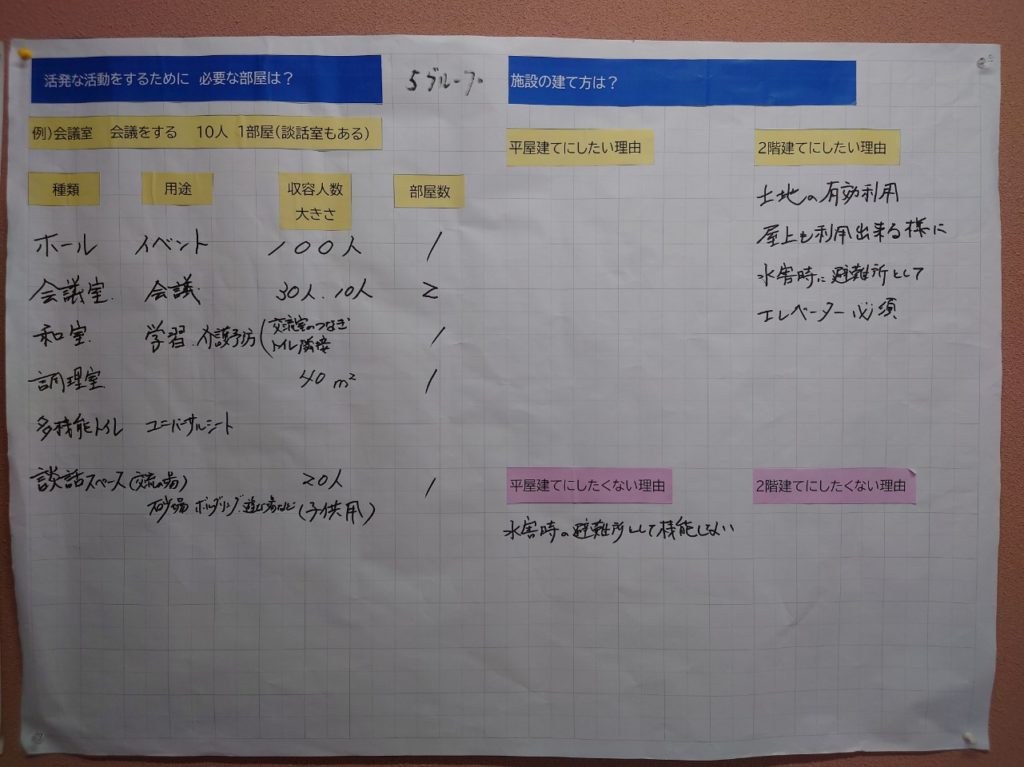 活発な活動をするために 必要な部屋は？
5グループ
施設の建て方は？
例）会議室 会議をする 10人 1部屋（談話室もある）
平屋建てにしたい理由
2階建てにしたい理由
種類 用途 収容人数 部屋数
大きさ
ホール イベント 100人 1
会議室 会議 30人、10人 2
和室 学習、介護予防（交流室のつなぎ 1
トイレ隣接
調理室 40m² 1
多機能トイレ ユニバーサルシート
談話スペース（交流の場） 20人 1
（子供用）
土地の有効利用
屋上も利用出来る様に
水害時に避難所として
エレベーター必須
平屋建てにしたくない理由
2階建てにしたくない理由
水害時の避難所として機能しない